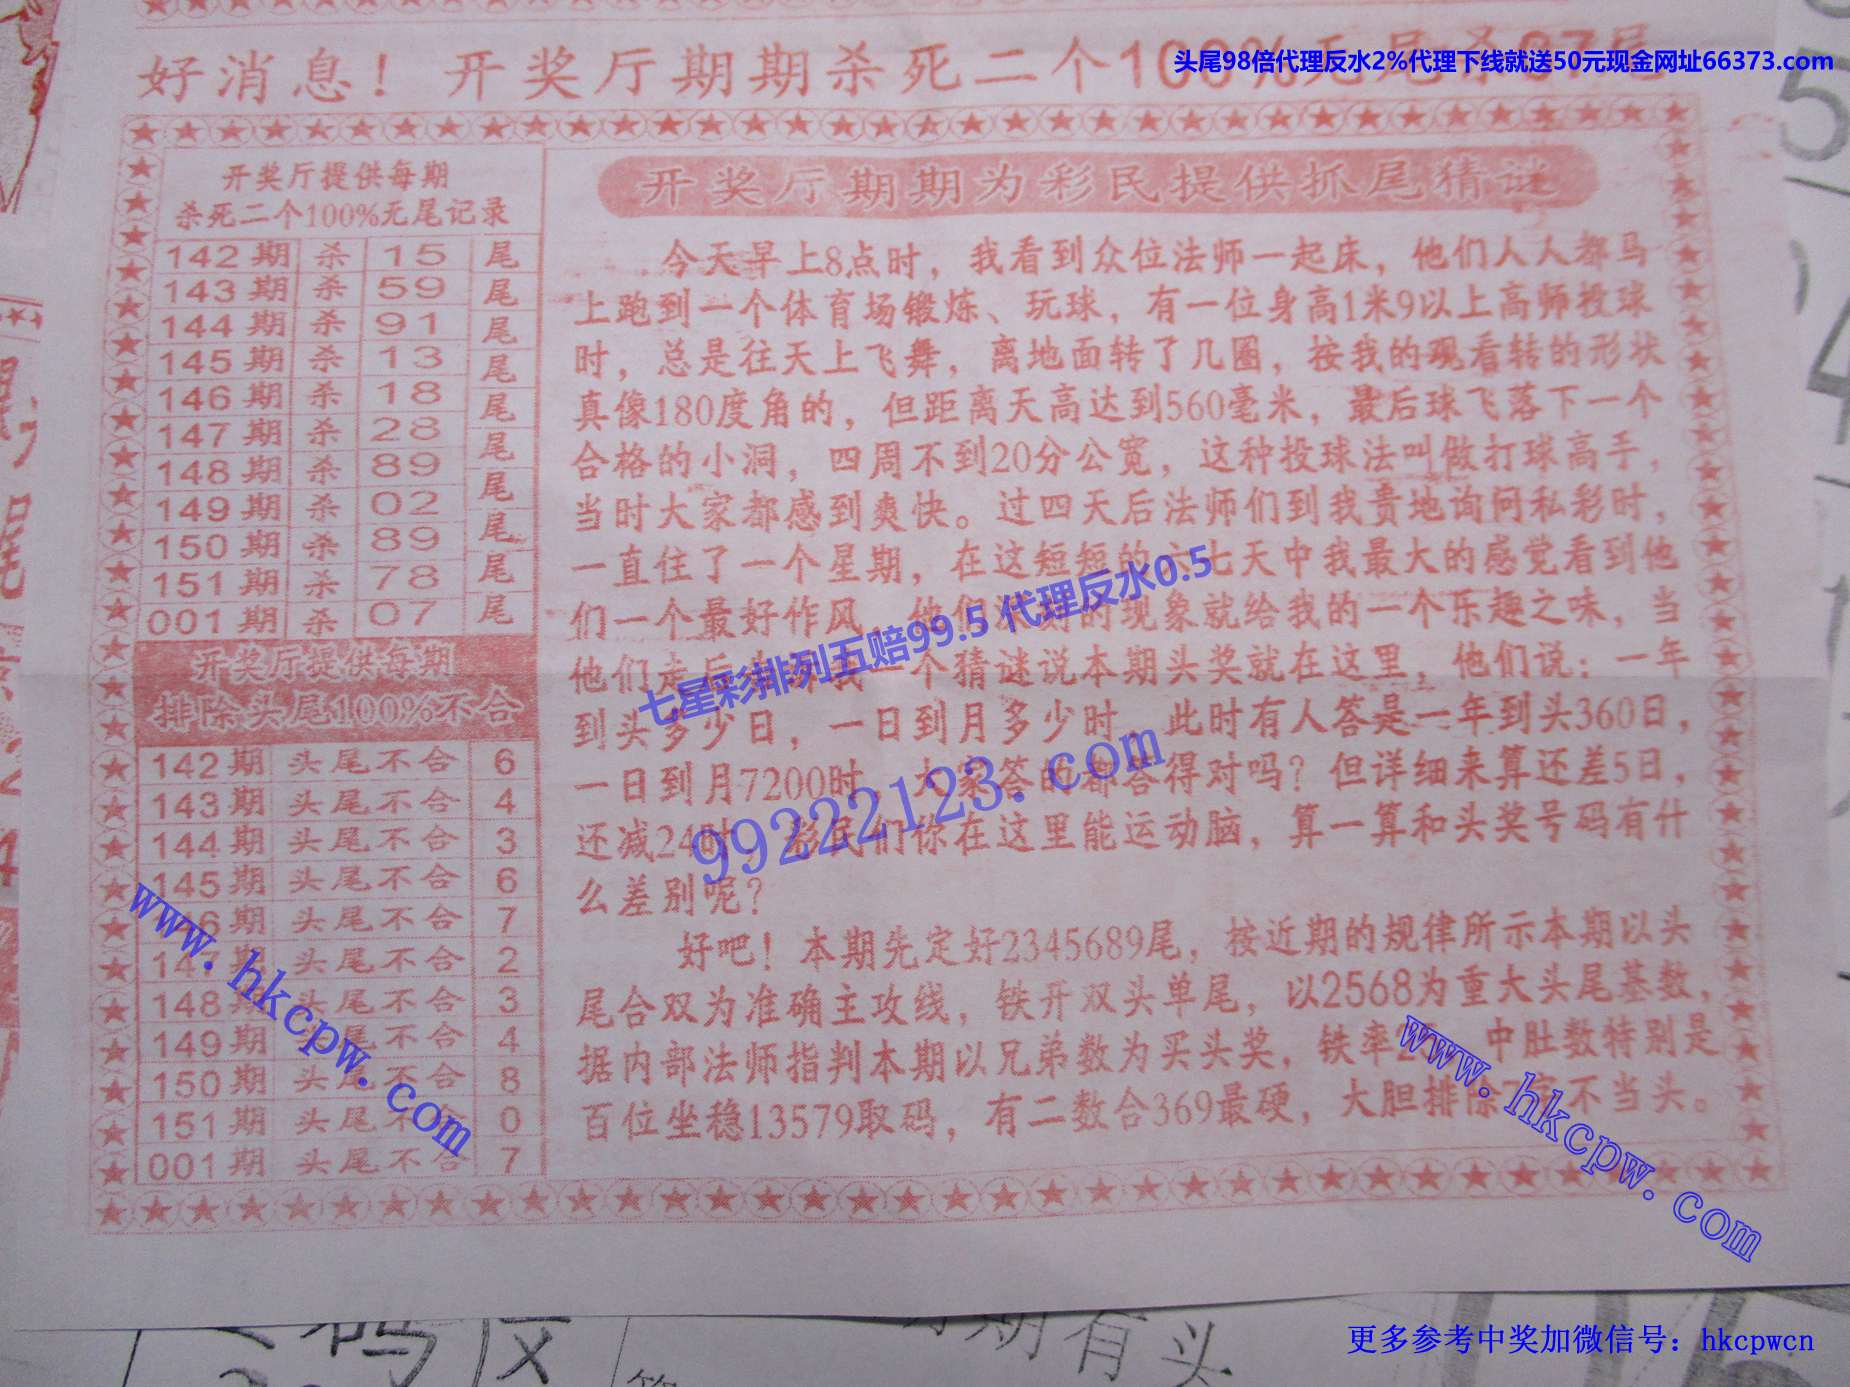 好消息！开奖厅期期杀死二个100%无尾杀07尾
头尾98倍代理反水2%代理下线就送50元现金网址66373.com
开奖厅提供每期
杀死二个100%无尾记录
142期 杀 15 尾
143期 杀 59 尾
144期 杀 91 尾
145期 杀 13 尾
146期 杀 18 尾
147期 杀 28 尾
148期 杀 89 尾
149期 杀 02 尾
150期 杀 89 尾
151期 杀 78 尾
001期 杀 07 尾
开奖厅提供每期
排除头尾100%不合
142期 头尾不合 6
143期 头尾不合 4
144期 头尾不合 3
145期 头尾不合 6
146期 头尾不合 7
147期 头尾不合 2
148期 头尾不合 3
149期 头尾不合 4
150期 头尾不合 8
151期 头尾不合 0
001期 头尾不合 7
开奖厅期期为彩民提供抓尾猜谜
今天早上8点时，我看到众位法师一起床，他们人人都马
上跑到一个体育场锻炼、玩球，有一位身高1米9以上高师投球
时，总是往天上飞舞，离地面转了几圈，按我的观看转的形状
真像180度角的，但距离天高达到560毫米，最后球飞落下一个
合格的小洞，四周不到20分公宽，这种投球法叫做打球高手，
当时大家都感到爽快。过四天后法师们到我贵地询问私彩时，
一直住了一个星期，在这短短的六七天中我最大的感觉看到他
们一个最好作风，他们 的现象就给我的一个乐趣之味，当
他们走后 我一个猜谜说本期头奖就在这里，他们说：一年
到头多少日，一日到月多少时，此时有人答是一年到头360日，
一日到月7200时，大家答的都答得对吗？但详细来算还差5日，
还减24时，彩民们你在这里能运动脑，算一算和头奖号码有什
么差别呢？
好吧！本期先定好2345689尾，按近期的规律所示本期以头
尾合双为准确主攻线，铁开双头单尾，以2568为重大头尾基数，
据内部法师指判本期以兄弟数为买头奖，铁率2 中肚数特别是
百位坐稳13579取码，有二数合369最硬，大胆排除7字不当头。
七星彩排列五赔99.5 代理反水0.5
99222123.com
www.hkcpw.com
www.hkcpw.com
更多参考中奖加微信号：hkcpwcn